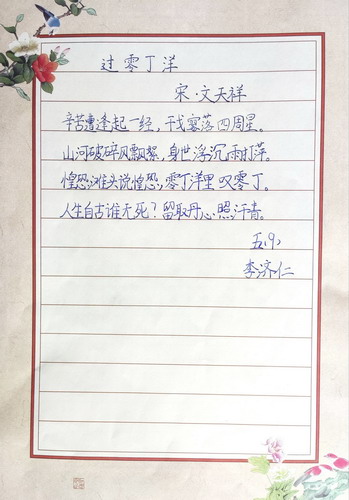 过零丁洋
宋·文天祥
辛苦遭逢起一经，干戈寥落四周星。
山河破碎风飘絮，身世浮沉雨打萍。
惶恐滩头说惶恐，零丁洋里叹零丁。
人生自古谁无死？留取丹心照汗青。
五、9、
李济仁